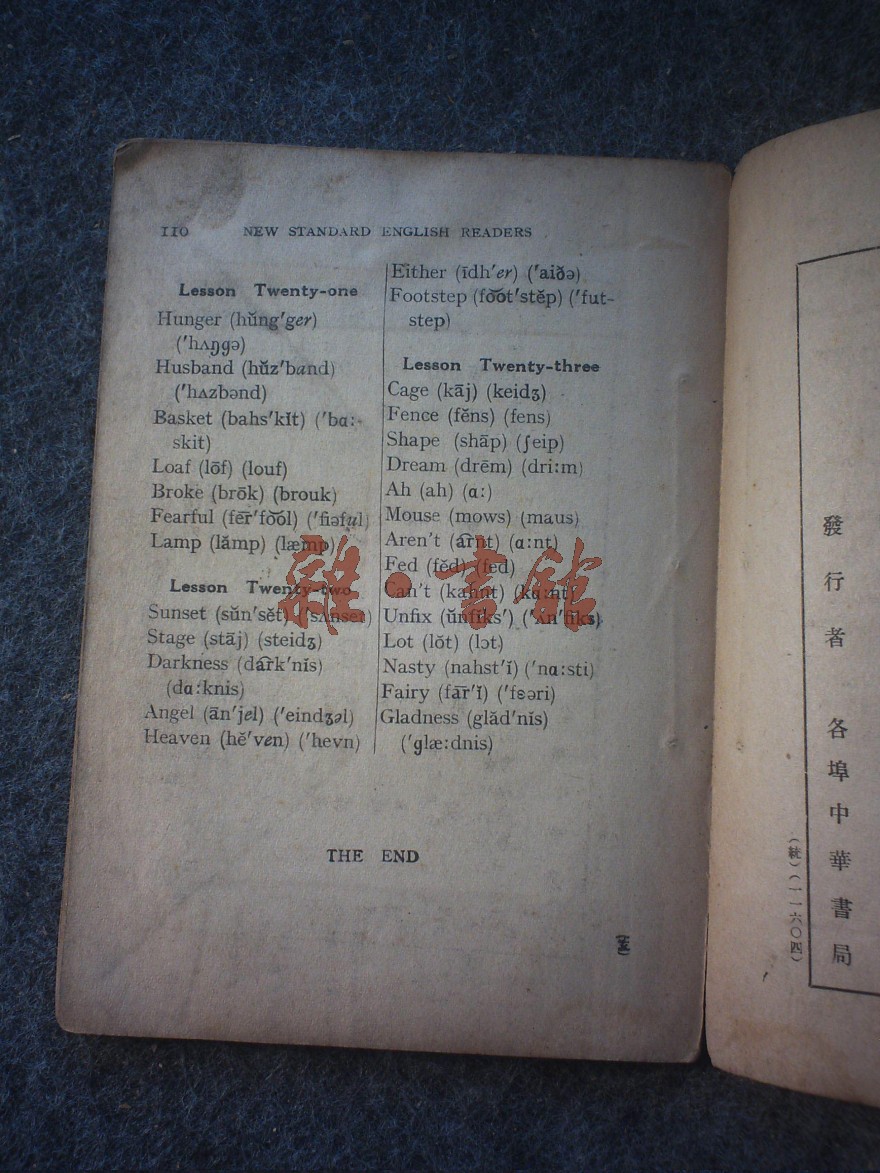 110 NEW STANDARD ENGLISH READERS
Lesson Twenty-one
Hunger (hŭng'ger)
('hʌŋgə)
Husband (hŭz'band)
('hʌzbənd)
Basket (bahs'kĭt) ('bɑ:-
skit)
Loaf (lōf) (louf)
Broke (brōk) (brouk)
Fearful (fēr'fŏŏl) ('fiəful)
Lamp (lămp) (læmp)
Lesson Twenty-two
Sunset (sŭn'sĕt) ('sʌnset)
Stage (stāj) (steidʒ)
Darkness (dark'nĭs)
(dɑ:knis)
Angel (ān'jel) ('eindʒəl)
Heaven (hĕ'ven) ('hevn)
Either (īdh'er) ('aiðə)
Footstep (fŏŏt'stĕp) ('fut-
step)
Lesson Twenty-three
Cage (kāj) (keidʒ)
Fence (fĕns) (fens)
Shape (shāp) (ʃeip)
Dream (drēm) (dri:m)
Ah (ah) (ɑ:)
Mouse (mows) (maus)
Aren't (arnt) (ɑ:nt)
Fed (fĕd) (fed)
Can't (kahnt) (kɑ:nt)
Unfix (ŭnfĭks') ('ʌn'fiks)
Lot (lŏt) (lɔt)
Nasty (nahst'ĭ) ('nɑ:sti)
Fairy (fār'ĭ) ('fɛəri)
Gladness (glăd'nĭs)
('glæ:dnis)
THE END
雜·書館
發行者 各埠中華書局
(統)(一一六〇四)